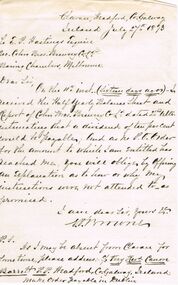 Clonave, Headford, Co. Galway
Ireland July 27th 1893
To C. P. Hastings Esquire
Sec. John's Brewery Co. Ltd
Chambers, Melbourne
Dear Sir,
On the 11th inst. (sixteen days ago) I
received the Half Yearly Balance Sheet and
Report of Brewery Co. Ltd dated
intimating that a dividend of ten per cent
would be payable, but as no P.O. Order
for the amount to which I am entitled has
reached me, you will oblige by offering
an explanation as to how or why my
instructions were not attended to as
promised.
I am dear Sir, Yours &c
P.S.
As I may be absent from for
sometime, please address % Very Revd Canon
Barrett P.P. Headford, Co. Galway, Ireland
Make Order payable in Dublin